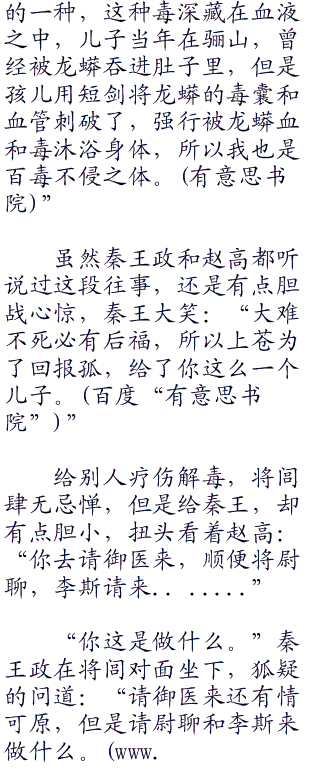 的一种，这种毒深藏在血液
之中，儿子当年在骊山，曾
经被龙蟒吞进肚子里，但是
孩儿用短剑将龙蟒的毒囊和
血管刺破了，强行被龙蟒血
和毒沐浴身体，所以我也是
百毒不侵之体。(有意思书
院)”
虽然秦王政和赵高都听
说过这段往事，还是有点胆
战心惊，秦王大笑：“大难
不死必有后福，所以上苍为
了回报孤，给了你这么一个
儿子。(百度“有意思书
院”)”
给别人疗伤解毒，将闾
肆无忌惮，但是给秦王，却
有点胆小，扭头看着赵高：
“你去请御医来，顺便将尉
聊，李斯请来．．．．．．．”
“你这是做什么。”秦
王政在将闾对面坐下，狐疑
的问道：“请御医来还有情
可原，但是请尉聊和李斯来
做什么。(www.